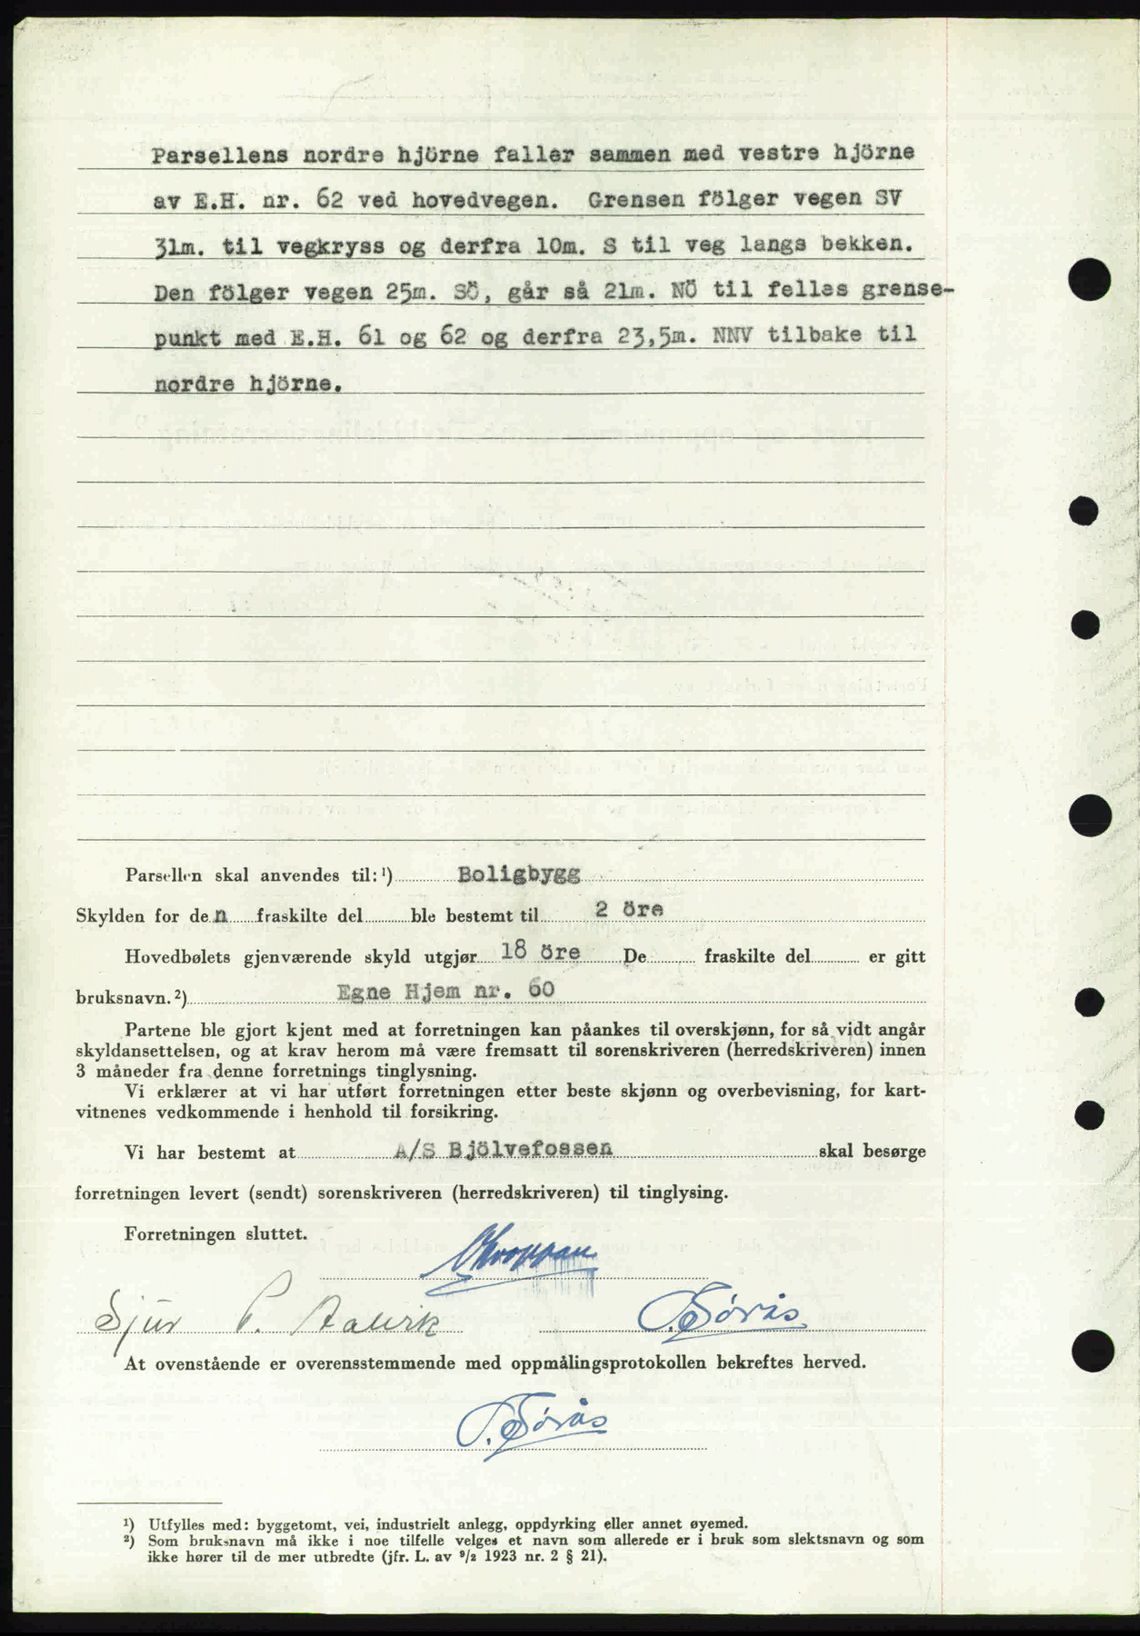 Parsellens nordre hjörne faller sammen med vestre hjörne
av E.H. nr. 62 ved hovedvegen. Grensen fölger vegen SV
31m. til vegkryss og derfra 10m. S til veg langs bekken.
Den fölger vegen 25m. SÖ, går så 21m. NÖ til felles grense-
punkt med E.H. 61 og 62 og derfra 23,5m. NNV tilbake til
nordre hjörne.
Parsellen skal anvendes til: ¹) Boligbygg
Skylden for den fraskilte del ble bestemt til 2 öre
Hovedbølets gjenværende skyld utgjør 18 öre De fraskilte del er gitt
bruksnavn. ²) Egne Hjem nr. 60
Partene ble gjort kjent med at forretningen kan påankes til overskjønn, for så vidt angår
skyldansettelsen, og at krav herom må være fremsatt til sorenskriveren (herredskriveren) innen
3 måneder fra denne forretnings tinglysning.
Vi erklærer at vi har utført forretningen etter beste skjønn og overbevisning, for kart-
vitnenes vedkommende i henhold til forsikring.
Vi har bestemt at A/S Bjölvefossen skal besørge
forretningen levert (sendt) sorenskriveren (herredskriveren) til tinglysing.
Forretningen sluttet.
Sjur P. Aalvik Sörås
At ovenstående er overensstemmende med oppmålingsprotokollen bekreftes herved.
Sörås
¹) Utfylles med: byggetomt, vei, industrielt anlegg, oppdyrking eller annet øyemed.
²) Som bruksnavn må ikke i noe tilfelle velges et navn som allerede er i bruk som slektsnavn og som
ikke hører til de mer utbredte (jfr. L. av ⁹/₂ 1923 nr. 2 § 21).